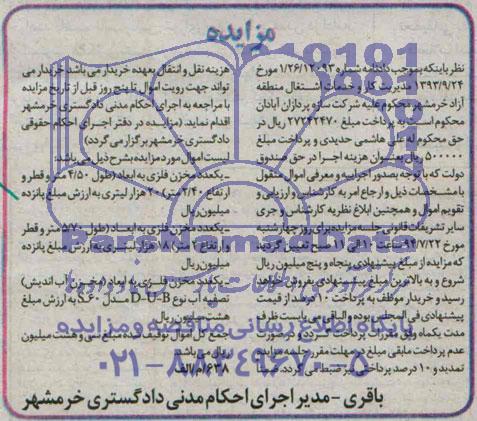 مزایده
نظر باینکه بموجب دادنامه شماره ۱/۲۶/۱۲۰۹۳ مورخ
۱۳۹۳/۹/۲۴ مدیریت کار و خدمات اشتغال منطقه
آزاد خرمشهر محکوم علیه شرکت سازه پردازان آبادان
محکوم است به پرداخت مبلغ ۲۷۲۶۳۴۷۰ ریال در
حق محکوم له علی هاشمی حدیدی و پرداخت مبلغ
۵۰۰۰۰۰ ریال بعنوان هزینه اجرا در حق صندوق
دولت که با توجه بصدور اجراییه و معرفی اموال منقول
با مشخصات ذیل و ارجاع امر به کارشناسی و ارزیابی و
تقویم اموال و همچنین ابلاغ نظریه کارشناس و جری
سایر تشریفات قانونی جلسه مزایده برای روز چهارشنبه
مورخ ۹۴/۷/۲۲ ساعت ۱۰ الی ۱۱ صبح تعیین گردید
که مزایده از مبلغ پیشنهادی پنجاه و پنج میلیون ریال
شروع و به بالاترین مبلغ پیشنهادی بفروش خواهد
رسید و خریدار موظف به پرداخت ۱۰ درصد از قیمت
پیشنهادی فی المجلس بوده والباقی می بایست ظرف
مدت یکماه وفق مقررات پرداخت گردد و در صورت
عدم پرداخت مابقی مبلغ در مهلت مقرر جلسه مزایده
تمدید و ۱۰ درصد پرداختی نیز ضبط می گردد. ضمنا
هزینه نقل و انتقال بعهده خریدار می باشد خریدار می
تواند جهت رویت اموال تا پنج روز قبل از تاریخ مزایده
با مراجعه به اجرای احکام مدنی دادگستری خرمشهر
اقدام نماید. (مزایده در دفتر اجرای احکام حقوقی
دادگستری خرمشهر برگزار می گردد)
لیست اموال مورد مزایده بشرح ذیل می باشد:
-یکعدد مخزن فلزی به ابعاد (طول ۴/۵۰ متر و قطر و
ارتفاع ۲/۴۰ متر) ۲۰ هزار لیتری به ارزش مبلغ پانزده
میلیون ریال
-یکعدد مخزن فلزی به ابعاد (طول ۵/۷۰ متر و قطر
و ارتفاع ۲ متر) ۱۸ هزار لیتری به ارزش مبلغ پانزده
میلیون ریال
-یکعدد مخزن فلزی به ابعاد (مخزن آب اندیش)
تصفیه آب نوع D-U-B مدل S۶۰ به ارزش مبلغ
هشت میلیون ریال
جمع کل اموال توقیف شده مبلغ سی و هشت میلیون
ریال می باشد
۶۳۸/م/الف
باقری -مدیر اجرای احکام مدنی دادگستری خرمشهر
پایگاه اطلاع رسانی مناقصه و مزایده
۰۲۱-۸۸۳۴۹۶۷۰-۵